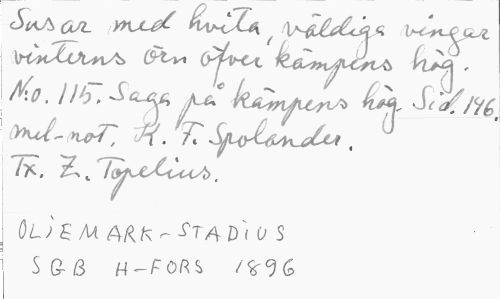 Susar med hvita, väldiga vingar
vinterns örn öfver kämpens hög.
N:o. 115. Saga på kämpens hög. Sid. 146.
mel-not. K. F. Spolander.
Tx. Z. Topelius.
OLiEMARK-STADiUS
SGB H-FORS 1896